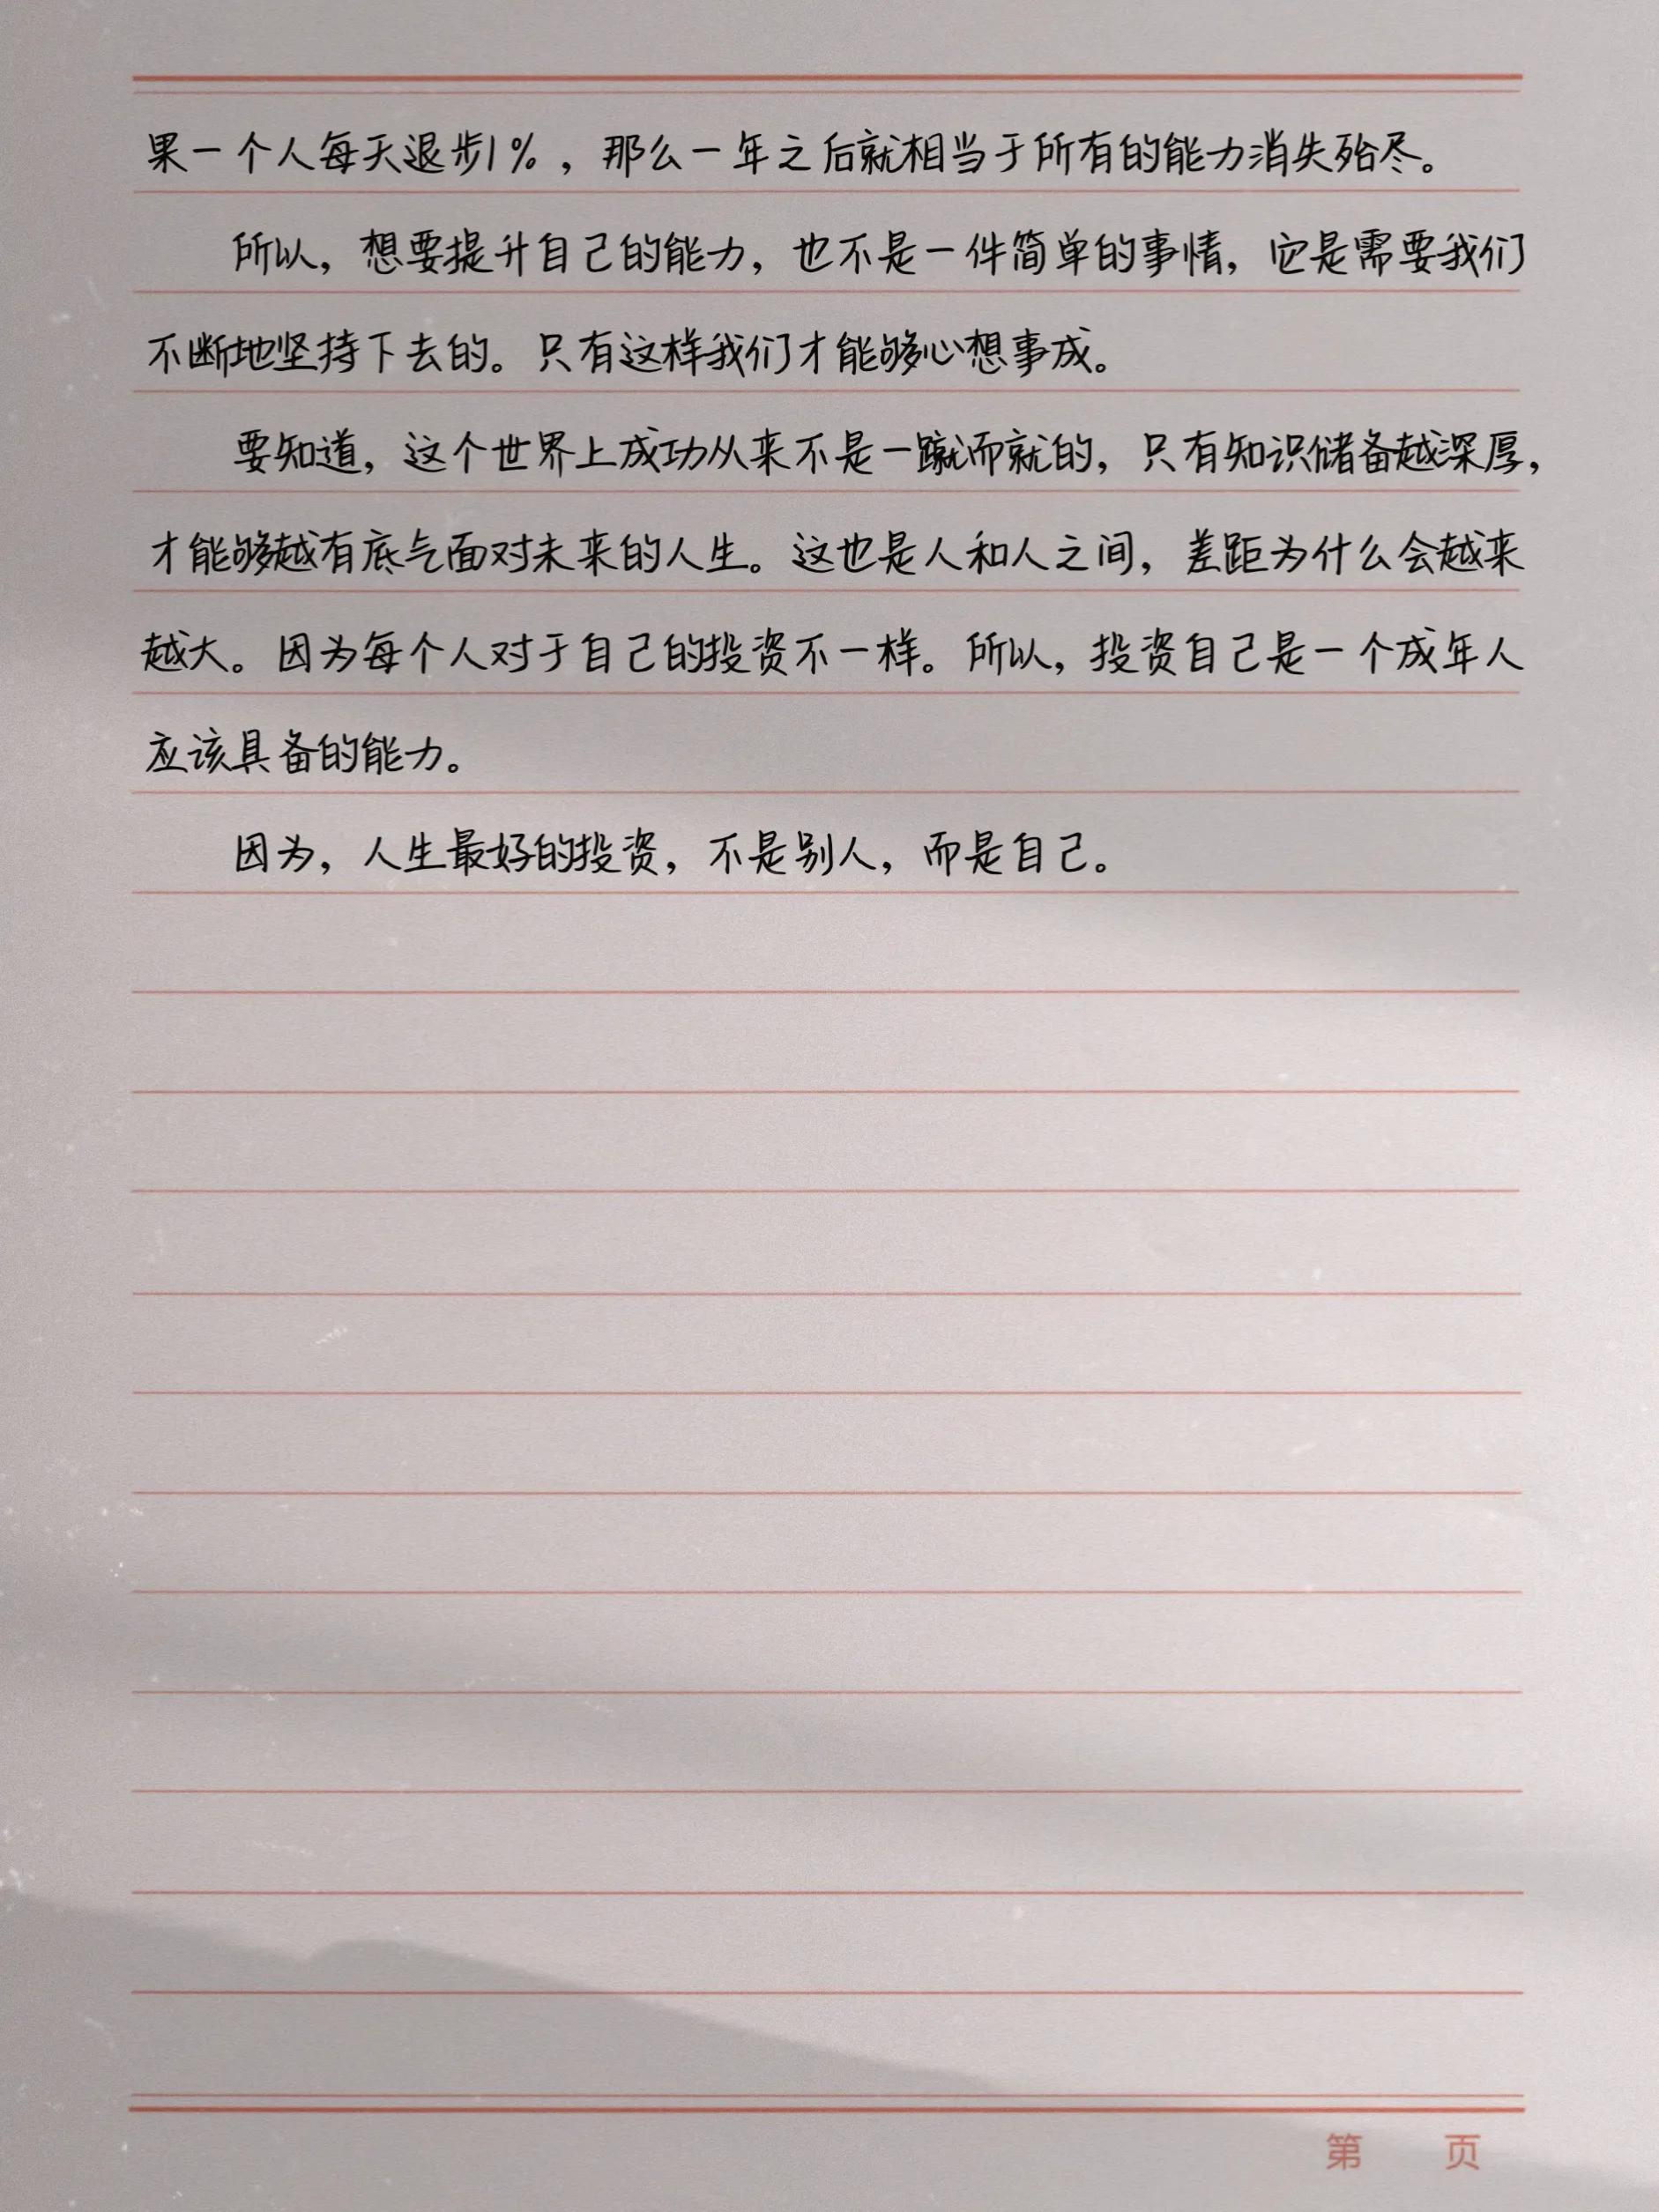 果一个人每天退步1%，那么一年之后就相当于所有的能力消失殆尽。
所以，想要提升自己的能力，也不是一件简单的事情，它是需要我们
不断地坚持下去的。只有这样我们才能够心想事成。
要知道，这个世界上成功从来不是一蹴而就的，只有知识储备越深厚，
才能够越有底气面对未来的人生。这也是人和人之间，差距为什么会越来
越大。因为每个人对于自己的投资不一样。所以，投资自己是一个成年人
应该具备的能力。
因为，人生最好的投资，不是别人，而是自己。
第 页